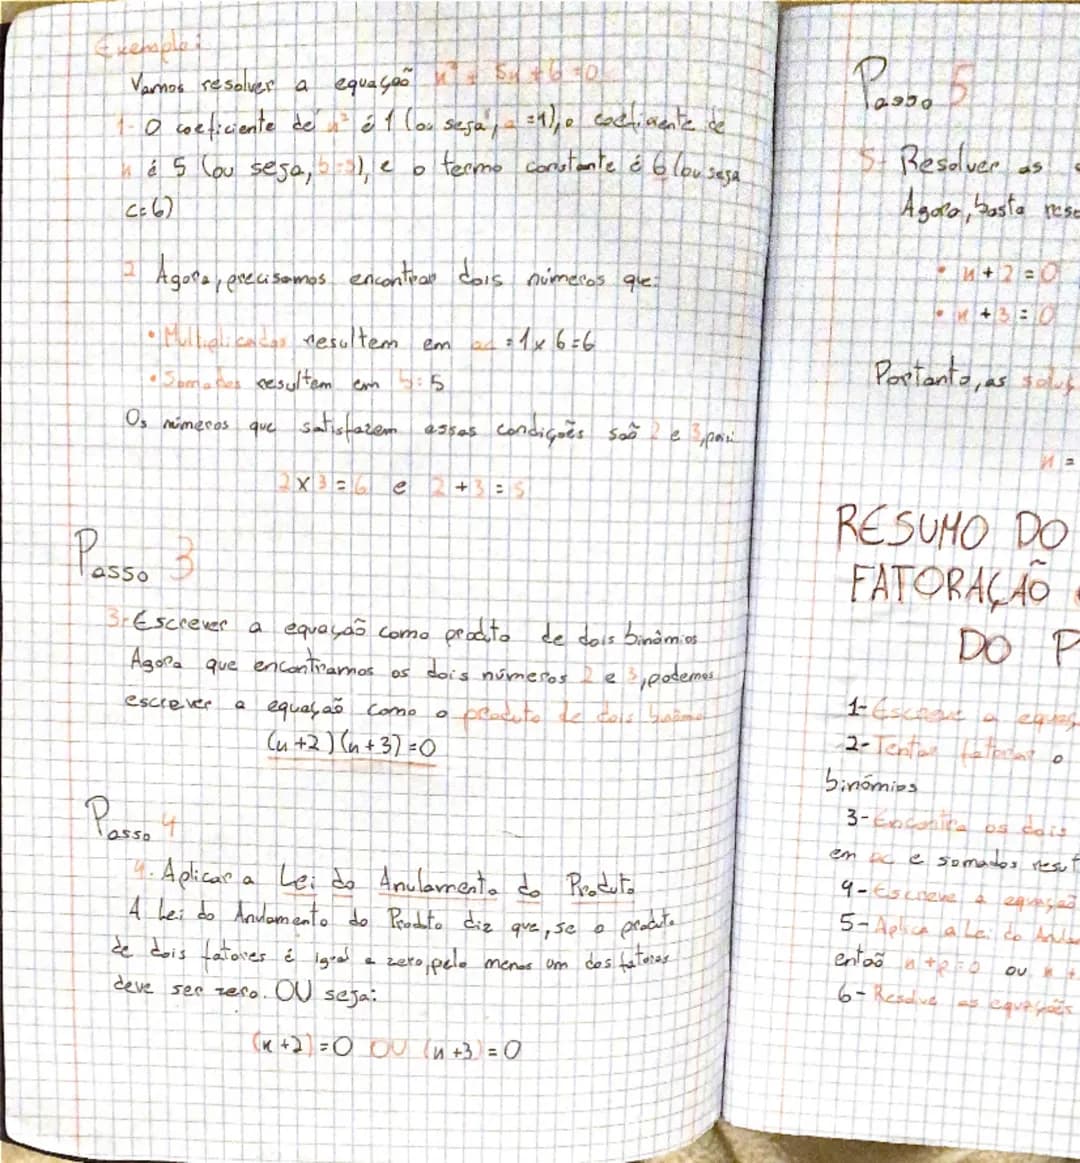 Exemplo:
Vamos resolver a equação x² + 5x + 6 = 0
1- O coeficiente de x² é 1 (ou seja, a = 1), o coeficiente de
x é 5 (ou seja, b = 5), e o termo constante é 6 (ou seja
c=6)
2 Agora, precisamos encontrar dois números que:
• Multiplicados resultem em ac = 1 x 6 = 6
• Somados resultem em b: 5
Os números que satisfazem assas condições saõ 2 e 3, pois:
2 x 3 = 6 e 2 + 3 = 5
Passo 3
3- Escrever a equação como produto de dois binómios
Agora que encontramos os dois números 2 e 3, podemos
escrever a equação como o produto de dois
(x+2)(x+3)=0
Passo 4
4. Aplicar a Lei do Anulamento do Produto
A Lei do Anulamento do Produto diz que, se o produto
de dois fatores é igual a zero, pelo menos um dos fatores
deve ser zero. OU seja:
(x+2)=0 OU (x+3)=0
Passo 5
5- Resolver as
Agora, basta
• x + 2 = 0
• x + 3 = 0
Portanto, as
x =
RESUMO DO
FATORAÇÃO
DO P
1- Escreve a
2- Tentar fatorar o
binómios
3- Encontra os dois
em ac e somados
4- Escreve a equação
5- Aplica a Lei do
entaõ x+p=0 ou x +
6- Resolve as equações